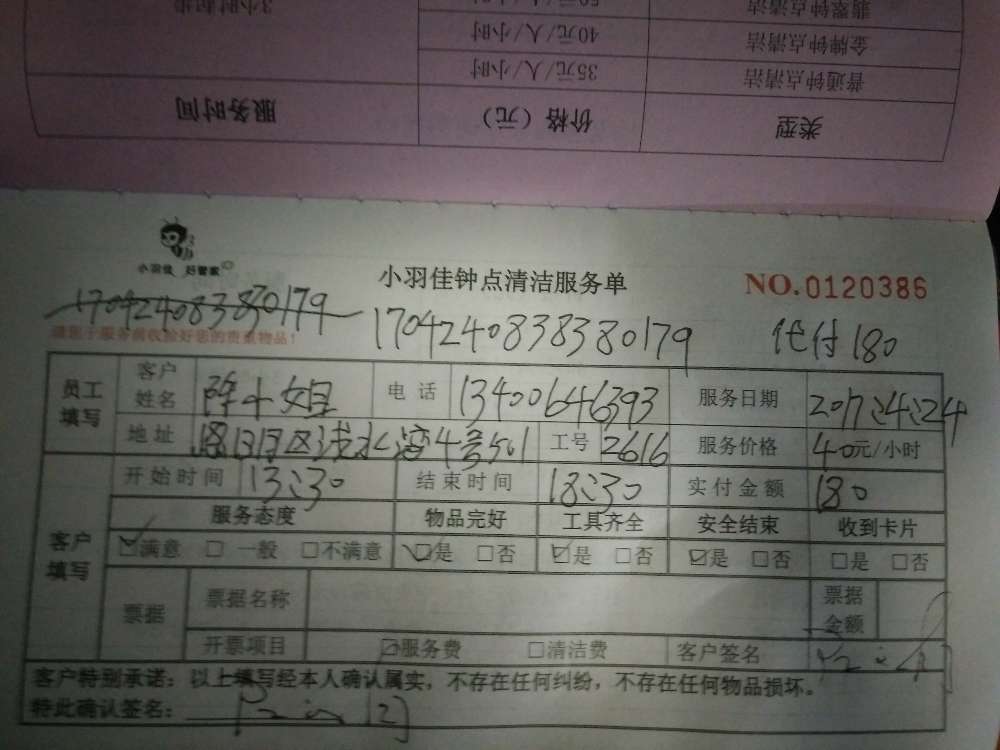 3小时起步
50元/人/小时
翡翠钟点清洁
40元/人/小时
金牌钟点清洁
35元/人/小时
普通钟点清洁
服务时间
价格（元）
类型
小羽佳 好管家
小羽佳钟点清洁服务单
NO.0120386
170424083830179
1704240838380179
代付180
请您于服务前收捡好您的贵重物品！
员工填写
客户姓名
陈小姐
电话
13400646393
服务日期
2017.4.24
地址
湾4号501
工号
2616
服务价格
40元/小时
客户填写
开始时间
13:30
结束时间
18:30
实付金额
180
服务态度
物品完好
工具齐全
安全结束
收到卡片
☑满意 □一般 □不满意
☑是 □否
☑是 □否
☑是 □否
□是 □否
票据
票据名称
票据金额
开票项目
☑服务费
□清洁费
客户签名
客户特别承诺：以上填写经本人确认属实，不存在任何纠纷，不存在任何物品损坏。
特此确认签名：